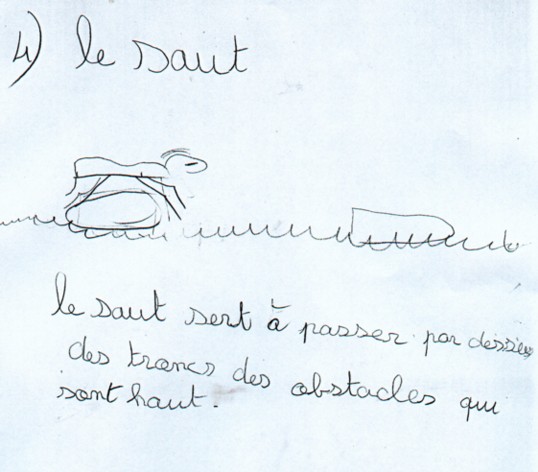 4) le saut
le saut sert à passer par dessus
des troncs des obstacles qui
sont haut.